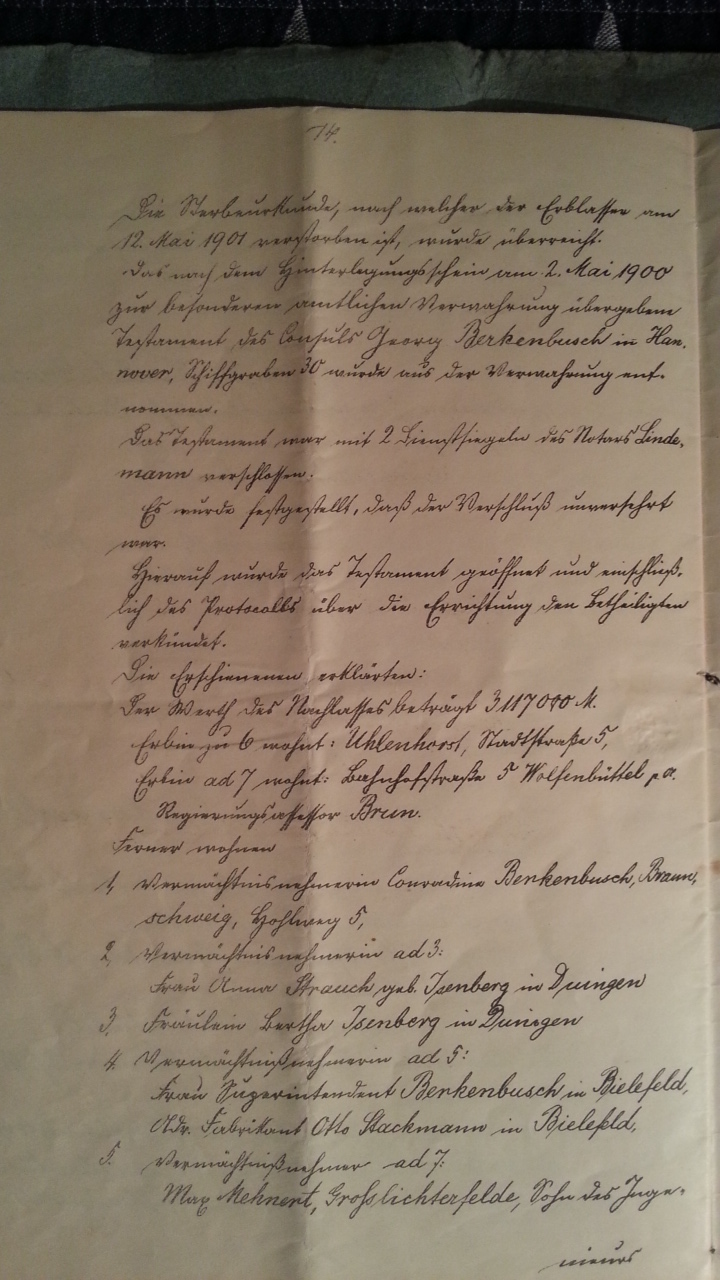 74.
Die Sterbeurkunde, nach welcher der Erblasser am
12. Mai 1901 verstorben ist, wurde überreicht.
Das nach dem Hinterlegungsschein am 2. Mai 1900
zur besonderen amtlichen Verwahrung übergebene
Testament des Consuls Georg Berkenbusch in Han-
nover, Schiffgraben 30 wurde aus der Verwahrung ent-
nommen.
Das Testament war mit 2 Dienstsiegeln des Notars Linde-
mann verschlossen.
Es wurde festgestellt, daß der Verschluß unversehrt
war.
Hierauf wurde das Testament geöffnet und einschließ-
lich des Protocolls über die Errichtung den Betheiligten
verkündet.
Die Erschienenen erklärten:
Der Werth des Nachlasses beträgt 3117000 M.
Erbin zu 6 wohnt: Uhlenhorst, Stadtstraße 5,
Erbin ad 7 wohnt: Bahnhofstraße 5 Wolfenbüttel p. a.
Regierungsassessor Brun.
Ferner wohnen
1, Vermächtnisnehmerin Conradine Berkenbusch, Braun-
schweig, Hohlweg 5,
2, Vermächtnisnehmerin ad 3:
Frau Anna Strauch geb. Isenberg in Duingen
3, Fräulein Bertha Isenberg in Duingen
4. Vermächtnißnehmerin ad 5:
Frau Superintendent Berkenbusch in Bielefeld,
Adr. Fabrikant Otto Stackmann in Bielefeld,
5. Vermächtnißnehmer ad 7:
Max Mehnert, Grosslichterfelde, Sohn des Inge-
nieurs